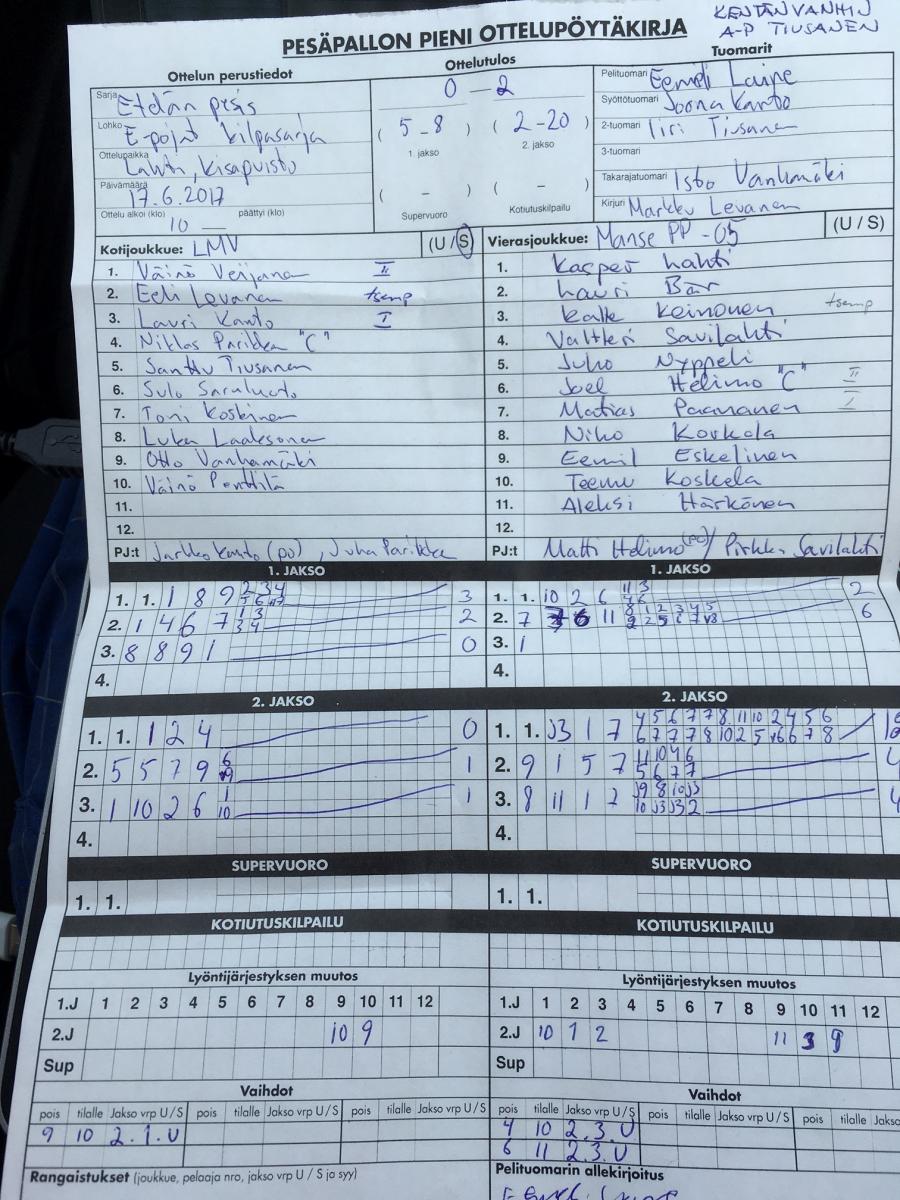 KENTÄNVANHIN
A-P TIUSANEN
PESÄPALLON PIENI OTTELUPÖYTÄKIRJA
Ottelun perustiedot
Sarja Etelän pesis
Lohko E-pojat kilpasarja
Ottelupaikka Lahti, Kisapuisto
Päivämäärä 17.6.2017
Ottelu alkoi (klo) 10 — päättyi (klo)
Ottelutulos
0 - 2
( 5 - 8 ) ( 2 - 20 )
1. jakso 2. jakso
( - ) ( - )
Supervuoro Kotiutuskilpailu
Tuomarit
Pelituomari Eemeli Laine
Syöttötuomari Joona Kanto
2-tuomari Iiri Tiusanen
3-tuomari
Takarajatuomari Isto Vanhamäki
Kirjuri Markku Levanen
Kotijoukkue: LMV (U / S)
1. Väinö Veijanen II
2. Eeli Levanen tsemp
3. Lauri Kanto I
4. Niklas Parikka "C"
5. Santtu Tiusanen
6. Sulo
7. Toni Koskinen
8. Luka Laaksonen
9. Otto Vanhamäki
10. Väinö Penttilä
11.
12.
PJ:t Jarkko Kanto (po), Juha Parikka
Vierasjoukkue: Manse PP -05 (U / S)
1. Kasper Lahti
2. Lauri Bär
3. Kalle Keinonen tsemp
4. Valtteri Savilahti
5. Juho Nyppeli
6. Joel Helimo "C" II
7. Matias Paananen I
8. Niko Korkola
9. Eemil Eskelinen
10. Teemu Koskela
11. Aleksi Härkönen
12.
PJ:t Matti Helimo (po) / Pirkka Savilahti
1. JAKSO
1. 1. 1 8 9 3
2. 1 4 6 7 2
3. 8 8 9 1 0
4.
1. JAKSO
1. 1. 10 2 6 2
2. 7 6 11 6
3. 1
4.
2. JAKSO
1. 1. 1 2 4 0
2. 5 5 7 9 1
3. 1 10 2 6 1 10 1
4.
2. JAKSO
1. 1. J3 1 7 4 5 6 7 7 8 11 10 2 4 5 6
6 7 7 7 8 10 2 5 6 7 8
2. 9 1 5 7 11 10 4 6
5 6 7 7
3. 8 11 1 7 J9 8 10 J3
10 J3 J3 2
4.
SUPERVUORO
1. 1.
SUPERVUORO
1. 1.
KOTIUTUSKILPAILU
KOTIUTUSKILPAILU
Lyöntijärjestyksen muutos
1.J 1 2 3 4 5 6 7 8 9 10 11 12
2.J 10 9
Sup
Lyöntijärjestyksen muutos
1.J 1 2 3 4 5 6 7 8 9 10 11 12
2.J 10 1 2 11 3 9
Sup
Vaihdot
pois tilalle Jakso vrp U / S pois tilalle Jakso vrp U / S pois tilalle Jakso vrp U / S
9 10 2.1.U
Vaihdot
pois tilalle Jakso vrp U / S pois tilalle Jakso vrp U / S pois tilalle Jakso
4 10 2.3.U
6 11 2.3.U
Rangaistukset (joukkue, pelaaja nro, jakso vrp U / S ja syy)
Pelituomarin allekirjoitus